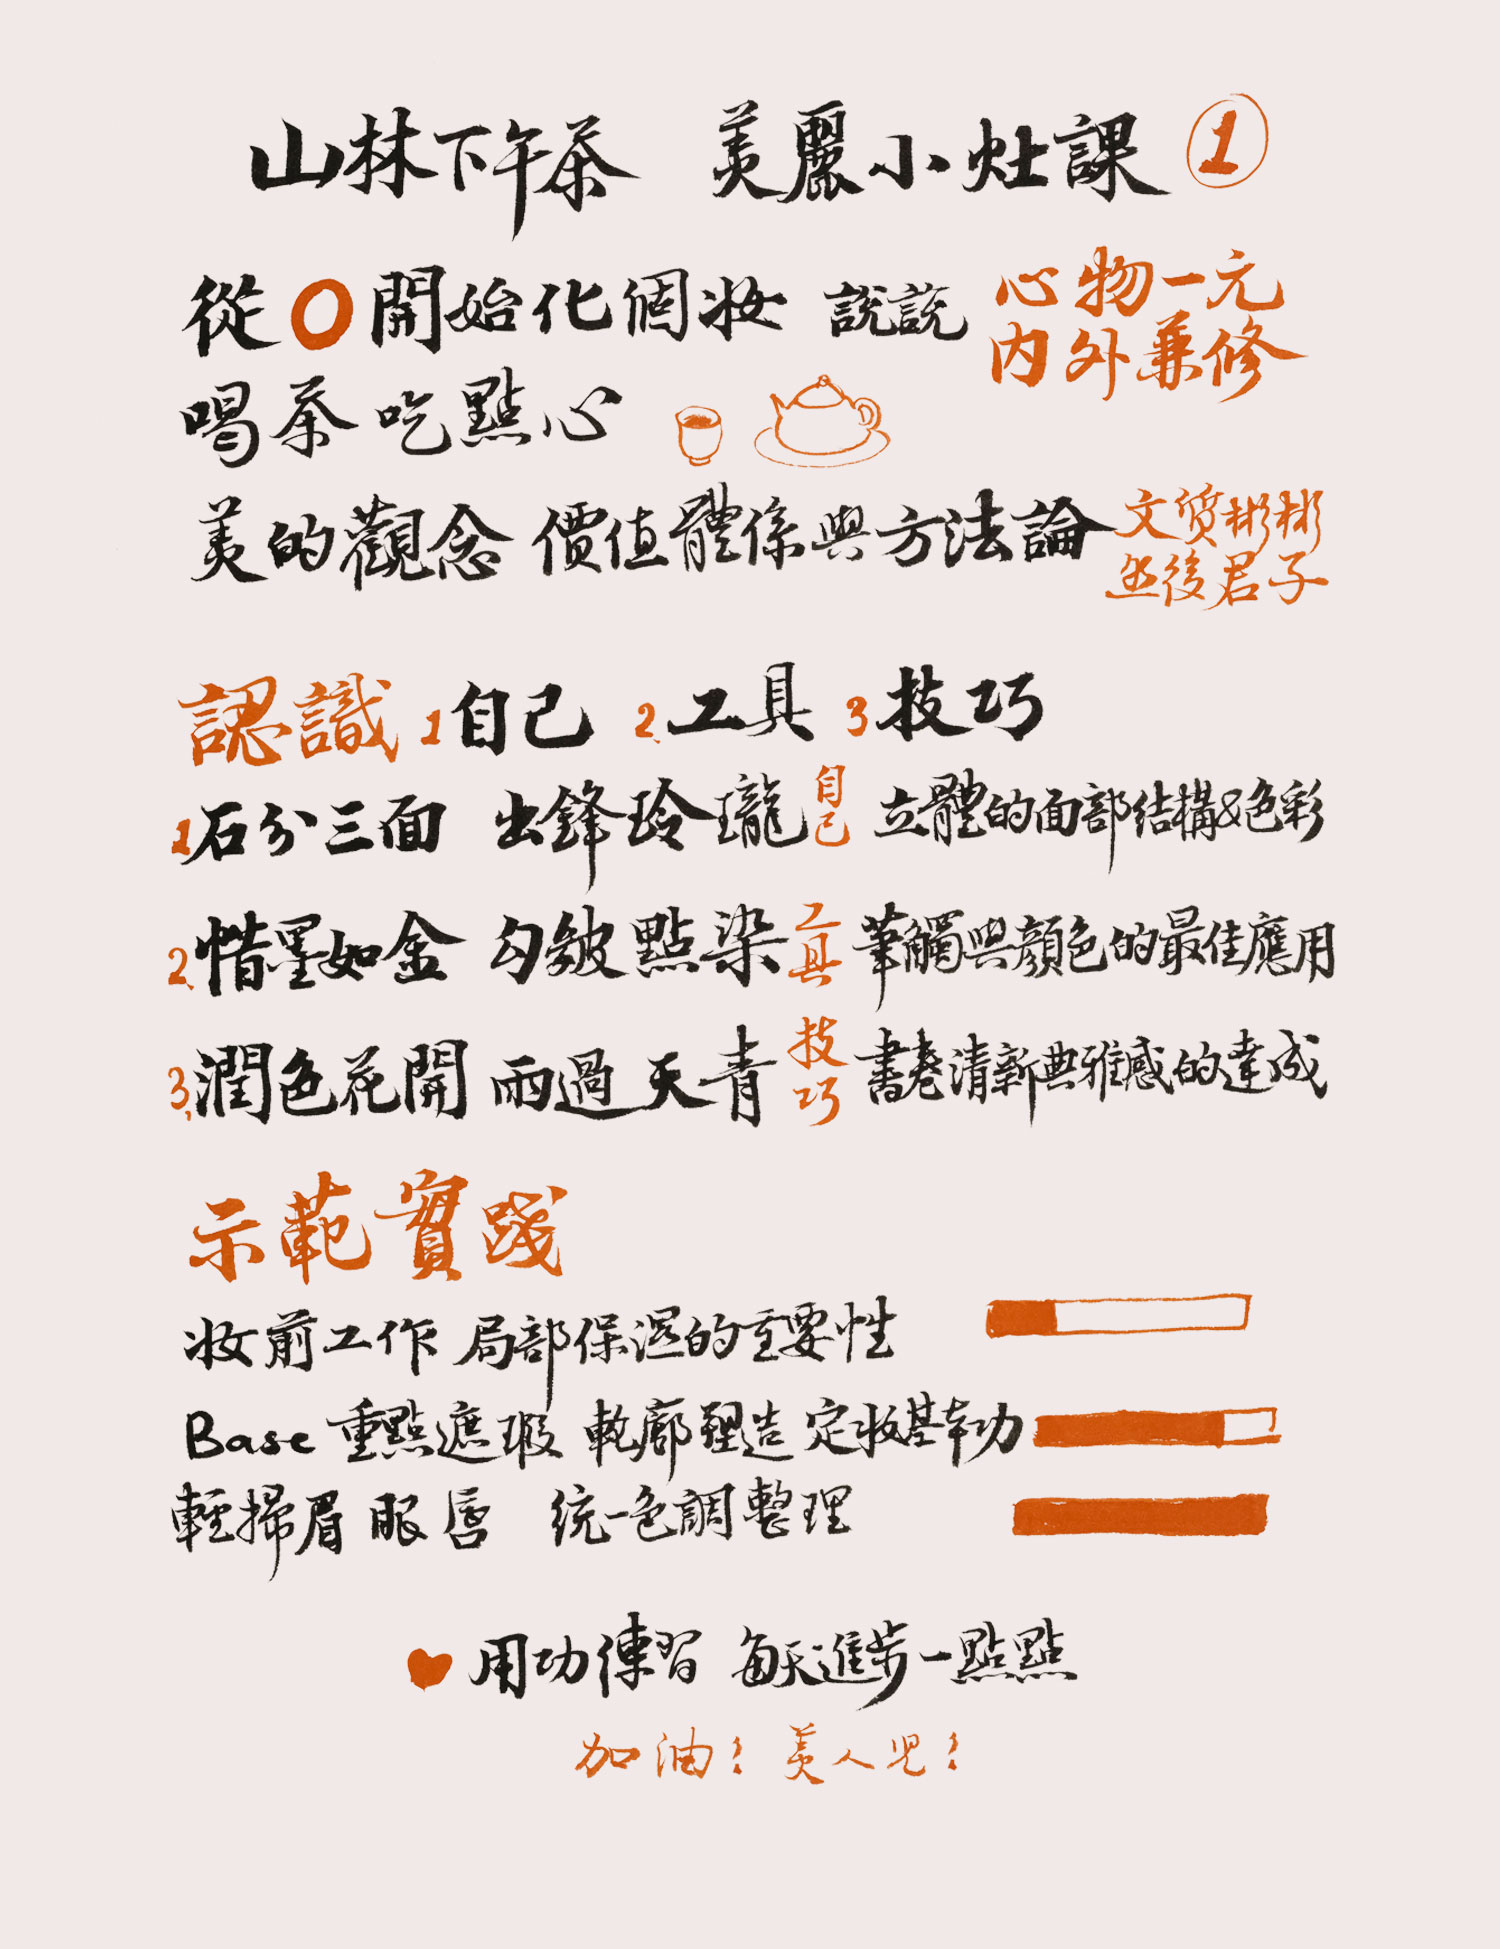 山林下午茶 美麗小灶課 1
從0開始化個妝 說說 心物一元
內外兼修
喝茶 吃點心
美的觀念 價值體係與方法論 文质彬彬
然後君子
認識 1自己 2.工具 3技巧
1石分三面 出鋒玲瓏 自己 立體的面部結構&色彩
2.惜墨如金 勾皴點染 工具 筆觸與顏色的最佳應用
3.潤色花開 雨過天青 技巧 書卷清新典雅感的達成
示範實踐
妝前工作 局部保濕的重要性
Base 重點遮瑕 軌廓塑造 定妝基本功
輕掃眉眼唇 統一色調整理
用功練習 每天進步一點點
加油! 美人儿!